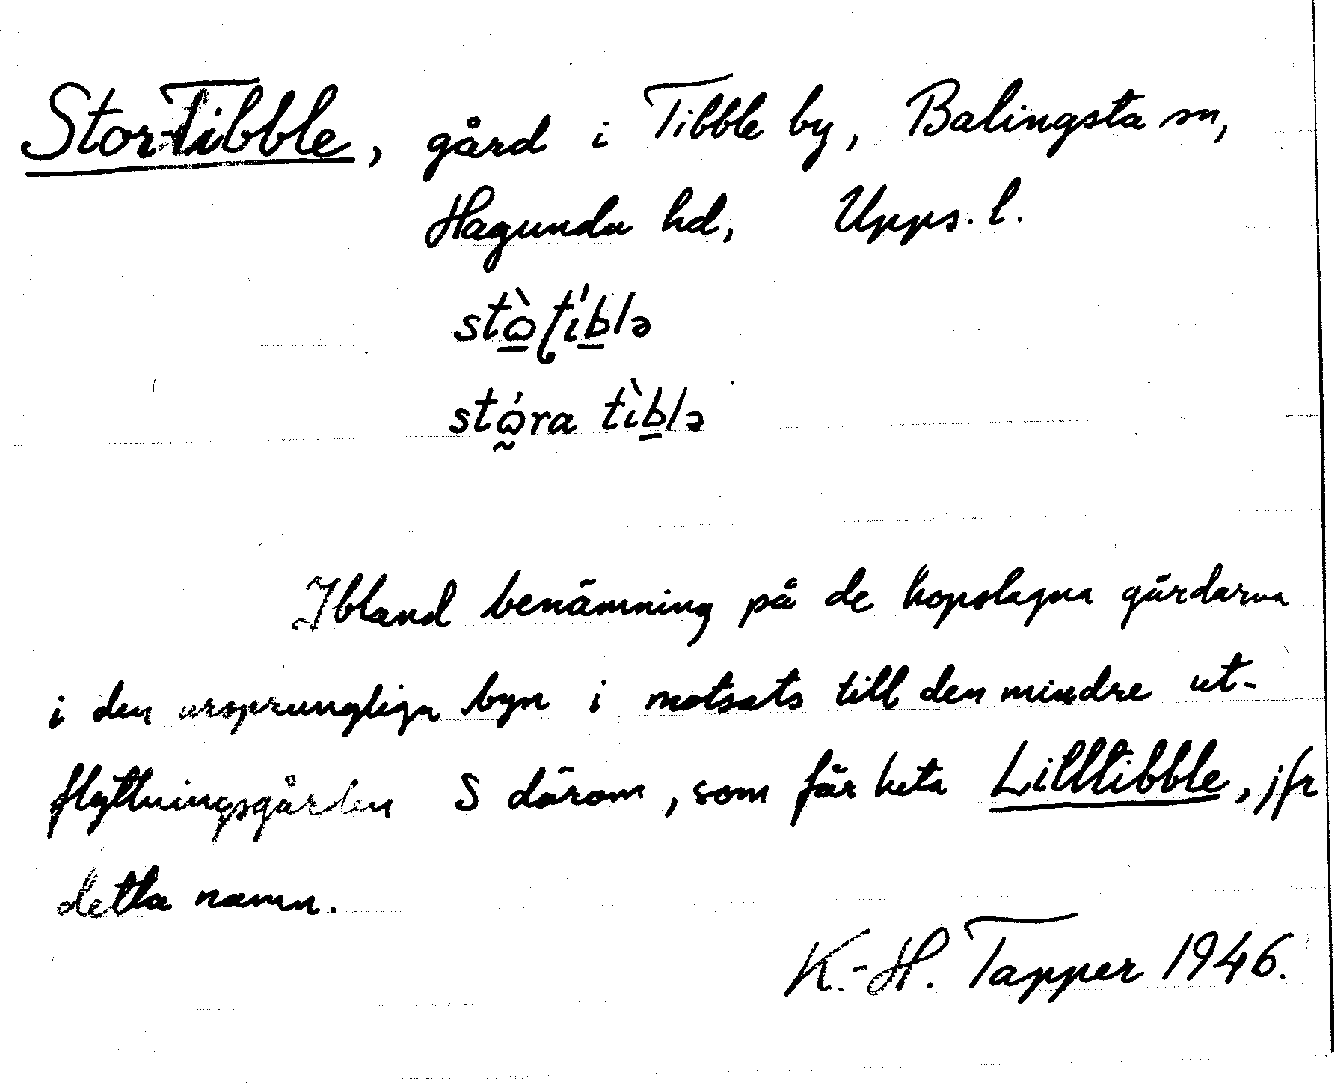 Stor-Tibble, gård i Tibble by, Balingsta sn,
Hagunda hd, Upps. l.
stò̱ʈíḇlə
stó̰ra tìḇlə
Ibland benämning på de hopslagna gårdarna
i den ursprungliga byn i motsats till den mindre ut-
flyttningsgården S därom, som får heta Lilltibble, jfr
detta namn.
K.-H. Tapper 1946.